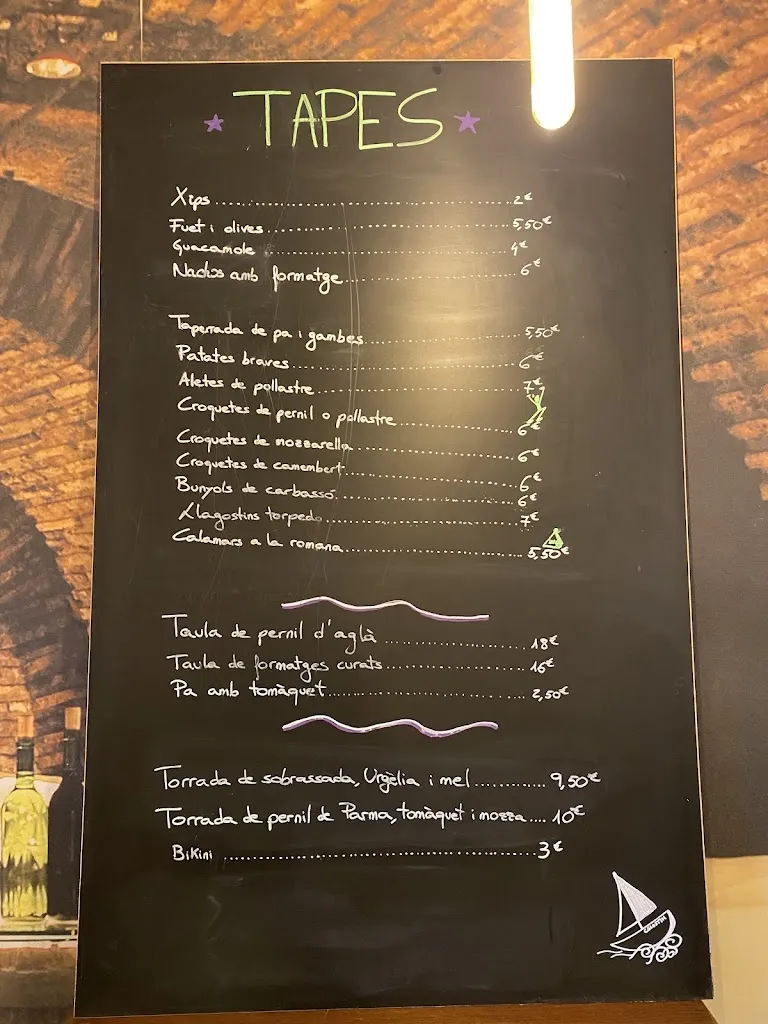 TAPES
Xips 2€
Fuet i olives 5,50€
Guacamole 4€
Nachos amb formatge 6€
Taperrada de pa i gambes 5,50€
Patates braves 6€
Aletes de pollastre 7€
Croquetes de pernil o pollastre 6€
Croquetes de mozzarella 6€
Croquetes de camembert 6€
Bunyols de carbassó 6€
Llagostins torpedo 7€
Calamars a la romana 5,50€
Taula de pernil d'aglà 18€
Taula de formatges curats 16€
Pa amb tomàquet 2,50€
Torrada de sobrassada, Urgèlia i mel 9,50€
Torrada de pernil de Parma, tomàquet i mozza 10€
Bikini 3€